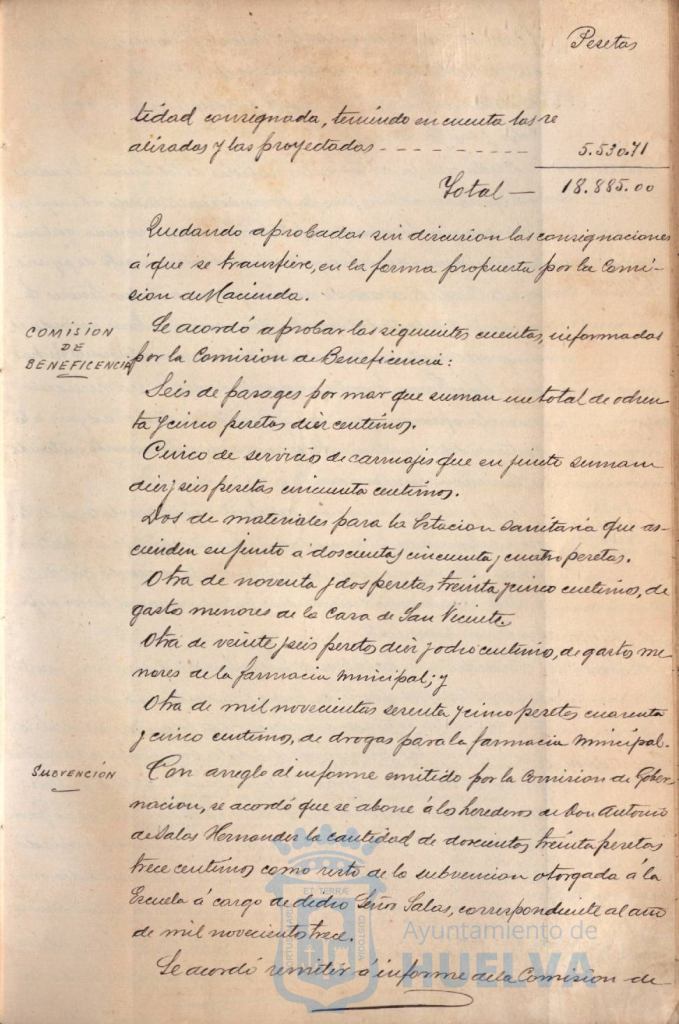 Pesetas
tidad consignada, teniendo en cuenta las re
alizadas y las proyectadas - - - - - - - 5.530.71
Total — 18.885.00
Quedando aprobadas sin discusion las consignaciones
á que se transfiere, en la forma propuesta por la Comi-
sion de Hacienda.
COMISION
DE
BENEFICENCIA
Se acordó aprobar las siguientes cuentas, informadas
por la Comision de Beneficencia:
Seis de pasages por mar que suman un total de ochen
ta y cinco pesetas diez centimos.
Cinco de servicio de carruajes que en junto suman
diez y seis pesetas cincuenta centimos.
Dos de materiales para la Estacion Sanitaria que as-
cienden en junto á doscientas cincuenta y cuatro pesetas.
Otra de noventa y dos pesetas treinta y cinco centimos, de
gastos menores de la Casa de San Vicente
Otra de veinte y seis pesetas diez y ocho centimos, de gastos me
nores de la farmacia municipal; y
Otra de mil novecientas setenta y cinco pesetas cuarenta
y cinco centimos, de drogas para la farmacia municipal.
SUBVENCIÓN
Con arreglo al informe emitido por la Comision de Gober-
nacion, se acordó que se abone á los herederos de Don Antonio
de Salas Hernandez la cantidad de doscientas treinta pesetas
trece centimos como resto de la subvencion otorgada á la
Escuela á cargo de dicho Señor Salas, correspondiente al año
de mil novecientos trece.
Se acordó remitir á informe de la Comision de
Ayuntamiento de
HUELVA